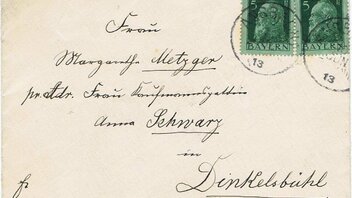 Frau
Margarethe Metzger
pr. Adr. Frau Kaufmannsgattin
Anna Schwarz
in
Dinkelsbühl
5
BAYERN
5
BAYERN
13
13